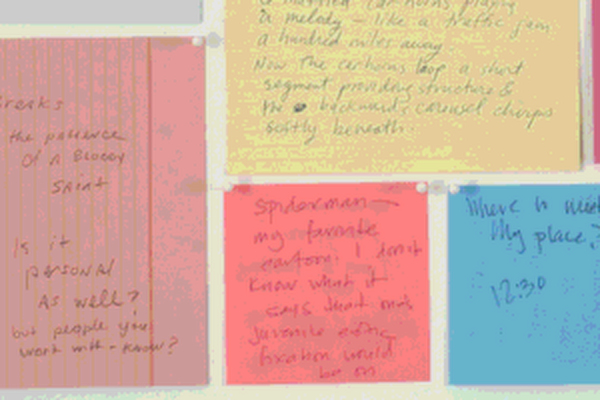 a melody - like a traffic jam
a hundred miles away
Now the carhorns loop a short
segment providing structure &
the backwards carousel chirps
softly beneath.
breaks
the patience
of a bloody
saint
Is it
personal
as well?
but people you
work with - know?
Spiderman -
my favorite
cartoon. I don't
know what it
says that one's
juvenile erotic
fixation would
be on
Where to meet
My place?
12:30